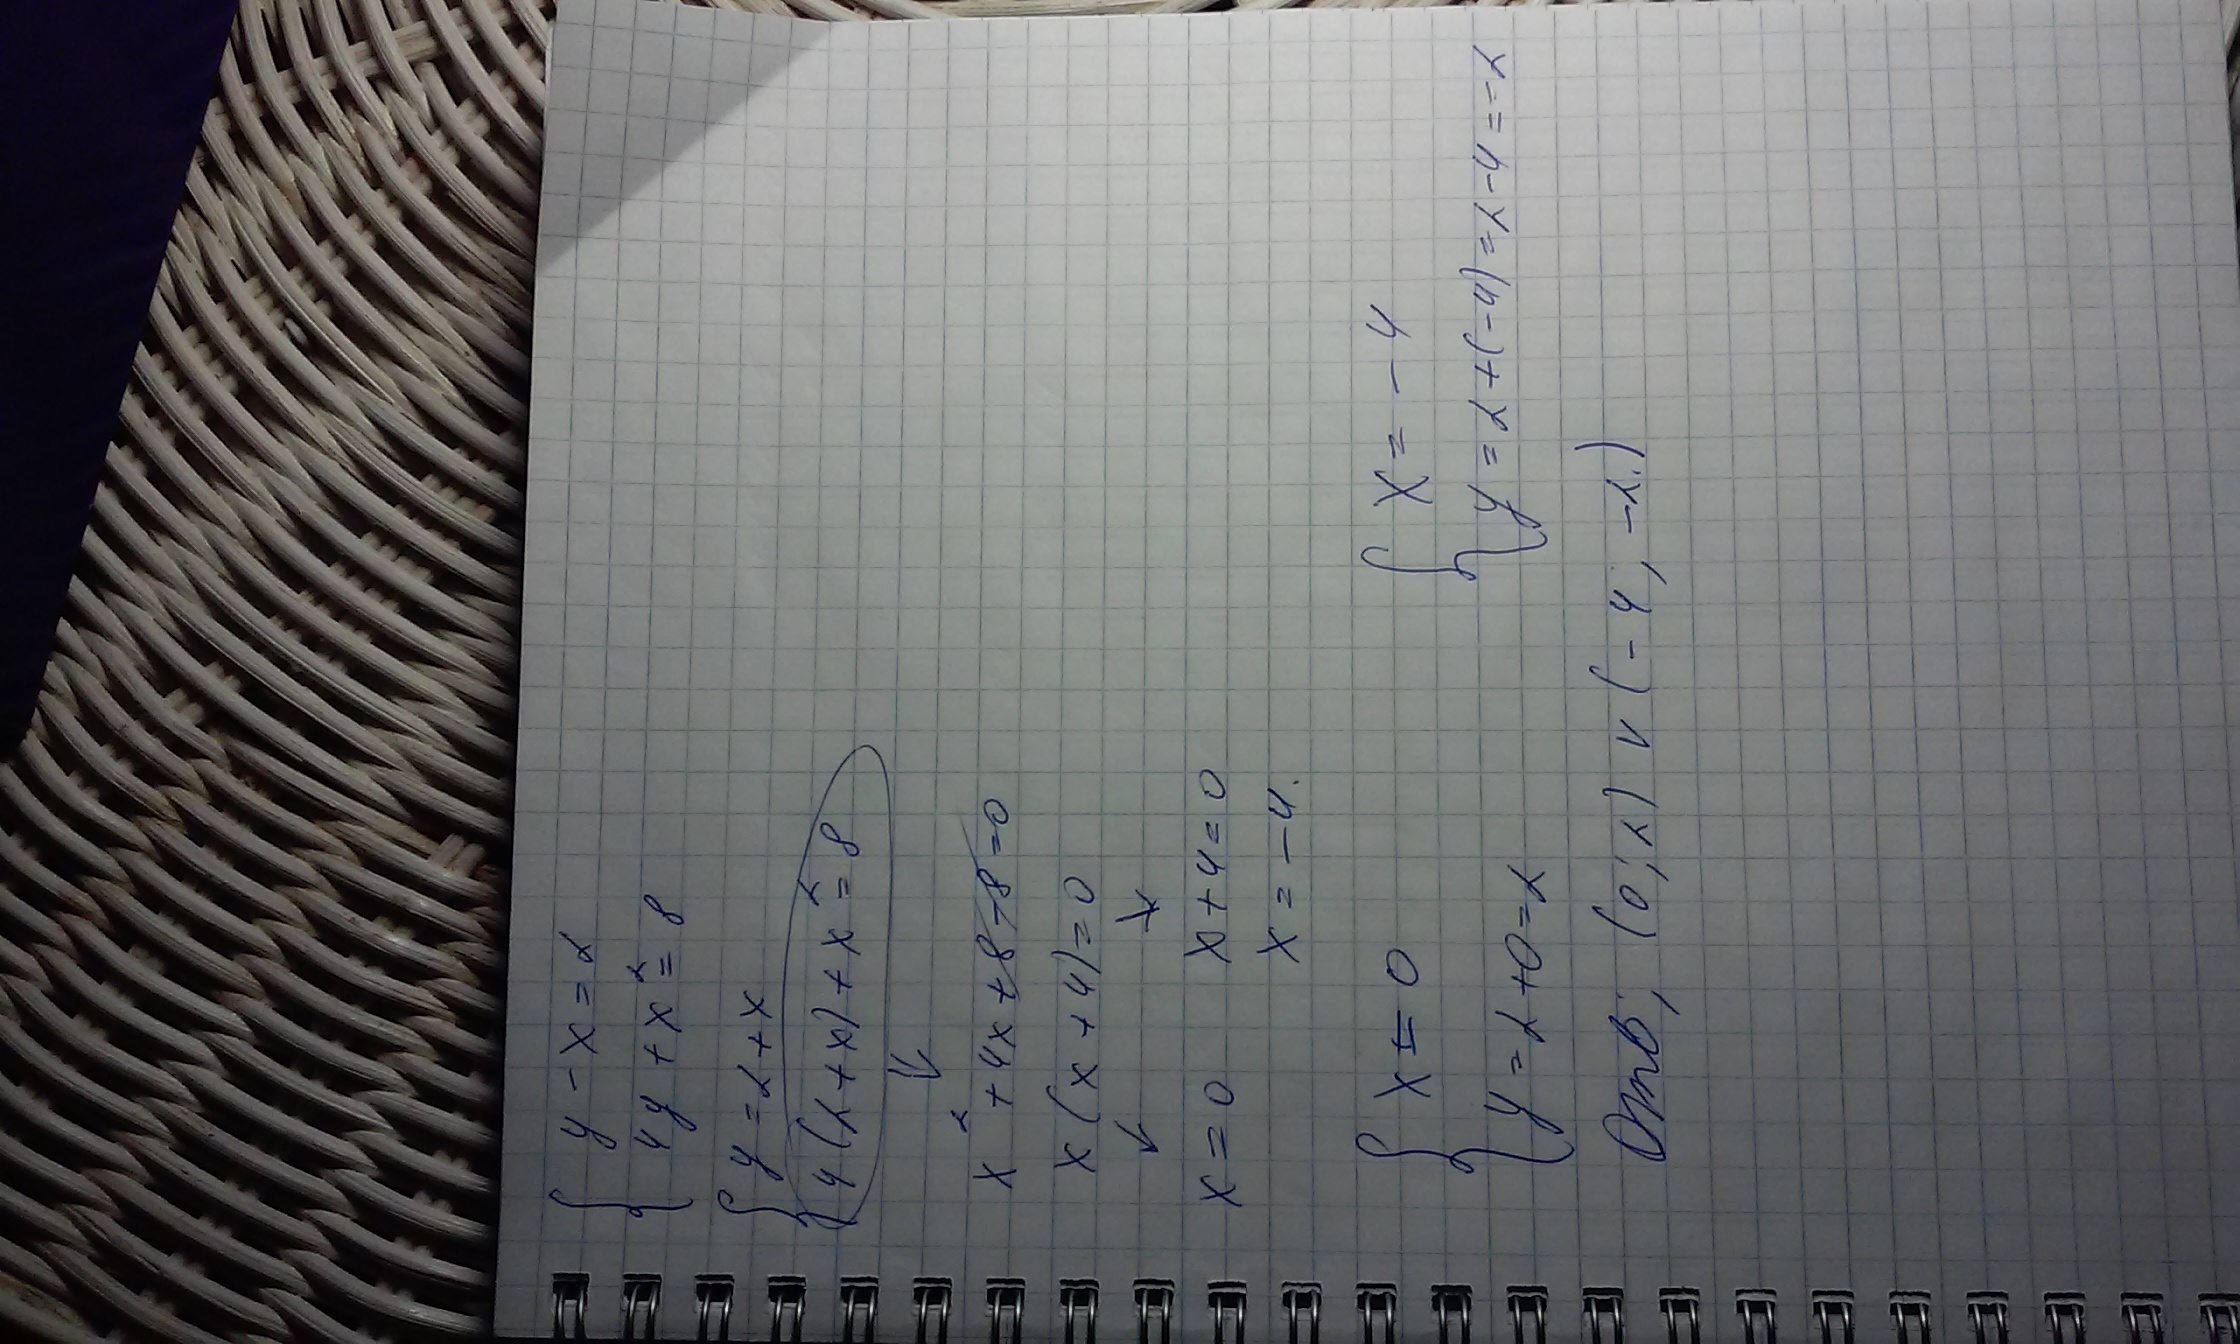 { y - x = 2
{ 4y + x² = 8
{ y = 2 + x
{ 4(2 + x) + x² = 8
↓
x² + 4x + 8 - 8 = 0
x(x + 4) = 0
↓ ↓
x = 0 x + 4 = 0
x = -4.
{ x = 0 { x = -4
{ y = 2 + 0 = 2 { y = 2 + (-4) = 2 - 4 = -2
Отв; (0; 2) и (-4; -2.)